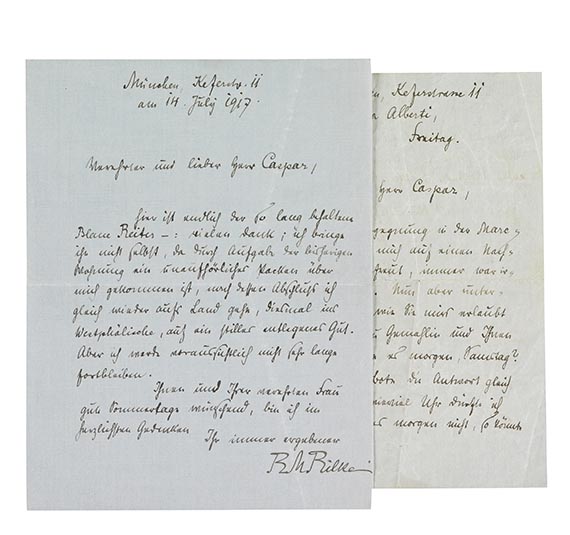 München, Keferstr. 11
am 14. July 1917.
Verehrter und lieber Herr Caspar,
hier ist endlich der so lang behaltene
Blaue Reiter –: vielen Dank; ich bringe
ihn nicht selbst, da durch Aufgabe der bisherigen
Wohnung ein unaufhörliches Packen über
mich gekommen ist, nach dessen Abschluss ich
gleich wieder aufs Land gehe, diesmal ins
Westphälische, auf ein stilles entlegenes Gut.
Aber ich werde voraussichtlich nicht sehr lange
fortbleiben.
Ihnen und Ihrer verehrten Frau
gute Sommertage wünschend, bin ich im
herzlichsten Gedenken
Ihr immer ergebener
RMRilke
Keferstrasse 11
Alberti,
Freitag.
Herr Caspar,
gegnung in der Marc-
mich auf einen Nach-
freut, immer war ir-
Nun aber unter-
wie Sie mirs erlaubt
Gemahlin und Ihnen
es morgen, Samstag?
bote die Antwort gleich
wieviel Uhr dürfte ich
es morgen nicht, so könnte